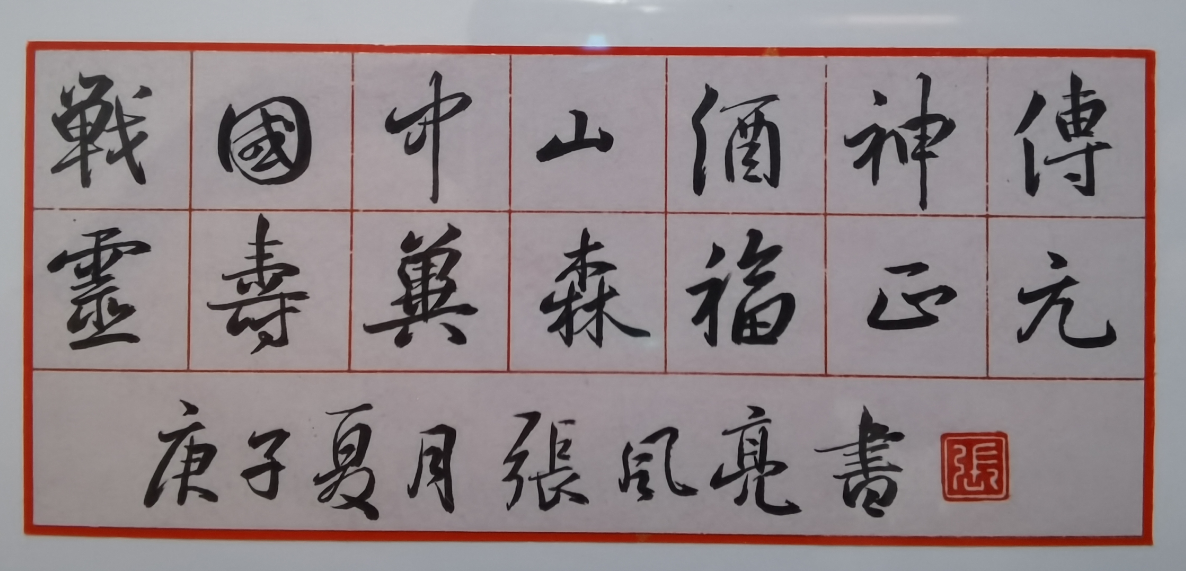 戰國中山酒神傳
靈壽冀森福正元
庚子夏月張風亮書
張